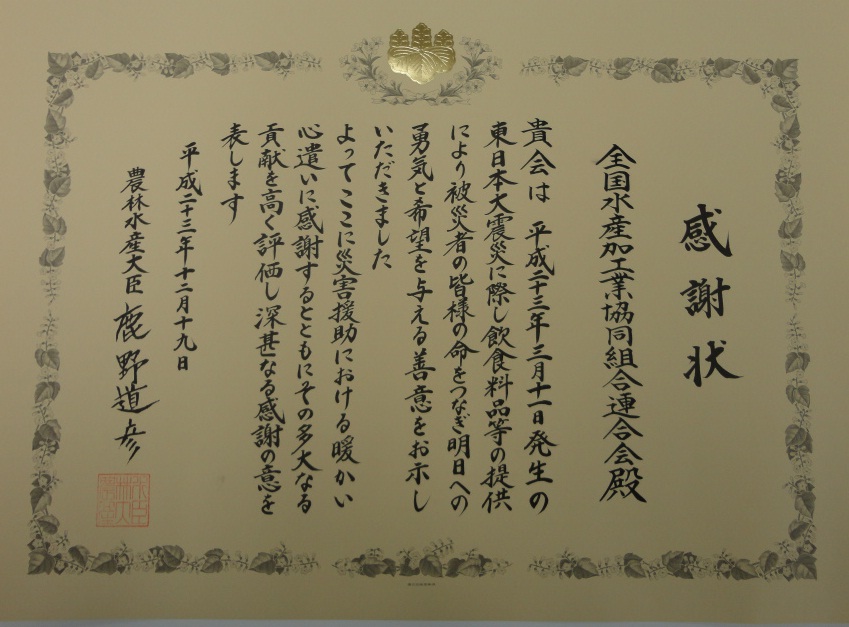 感謝状
全国水産加工業協同組合連合会殿
貴会は 平成二十三年三月十一日発生の
東日本大震災に際し飲食料品等の提供
により被災者の皆様の命をつなぎ明日への
勇気と希望を与える善意をお示し
いただきました
よってここに災害援助における暖かい
心遣いに感謝するとともにその多大なる
貢献を高く評価し深甚なる感謝の意を
表します
平成二十三年十二月十九日
農林水産大臣 鹿野道彦